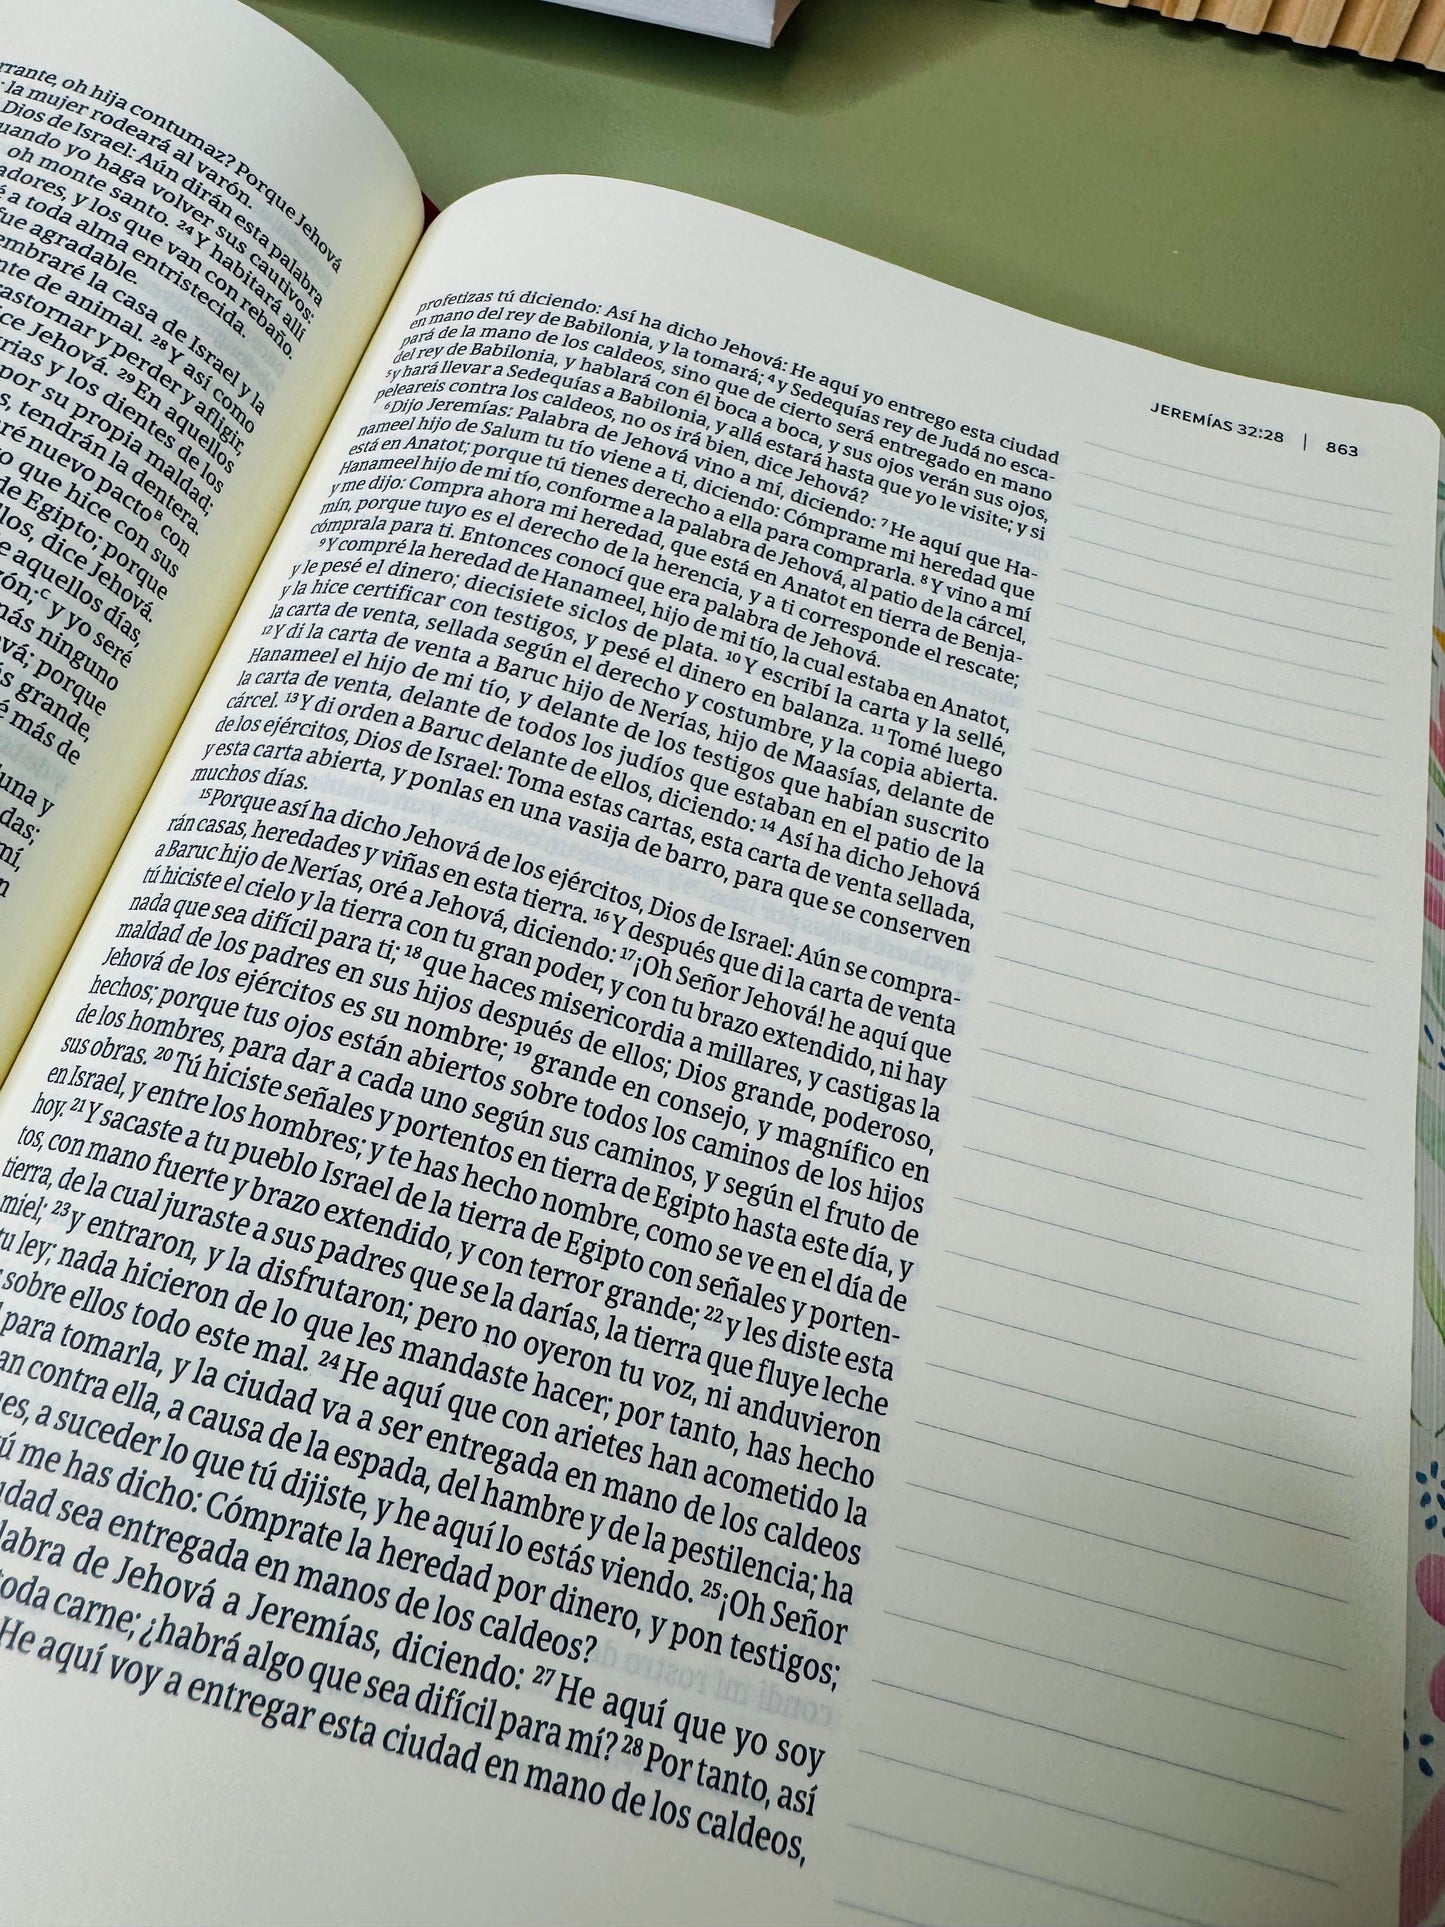 rrante, oh hija contumaz? Porque Jehová
la mujer rodeará al varón.
Dios de Israel: Aún dirán esta palabra
uando yo haga volver sus cautivos:
oh monte santo. 24 Y habitará allí
adores, y los que van con rebaño.
é a toda alma entristecida.
fue agradable.
embraré la casa de Israel y la
nte de animal. 28 Y así como
rastornar y perder y afligir,
ice Jehová. 29 En aquellos
rias y los dientes de los
por su propia maldad;
s, tendrán la dentera.
aré nuevo pacto B con
o que hice con sus
de Egipto; porque
llos, dice Jehová.
e aquellos días,
zón; C y yo seré
más ninguno
vá; porque
s grande,
é más de
luna y
das;
mí,
n
JEREMÍAS 32:28 | 863
profetizas tú diciendo: Así ha dicho Jehová: He aquí yo entrego esta ciudad
en mano del rey de Babilonia, y la tomará; 4 y Sedequías rey de Judá no esca-
pará de la mano de los caldeos, sino que de cierto será entregado en mano
del rey de Babilonia, y hablará con él boca a boca, y sus ojos verán sus ojos,
5 y hará llevar a Sedequías a Babilonia, y allá estará hasta que yo le visite; y si
peleareis contra los caldeos, no os irá bien, dice Jehová?
6 Dijo Jeremías: Palabra de Jehová vino a mí, diciendo: 7 He aquí que Ha-
nameel hijo de Salum tu tío viene a ti, diciendo: Cómprame mi heredad que
está en Anatot; porque tú tienes derecho a ella para comprarla. 8 Y vino a mí
Hanameel hijo de mi tío, conforme a la palabra de Jehová, al patio de la cárcel,
y me dijo: Compra ahora mi heredad, que está en Anatot en tierra de Benja-
mín, porque tuyo es el derecho de la herencia, y a ti corresponde el rescate;
cómprala para ti. Entonces conocí que era palabra de Jehová.
9 Y compré la heredad de Hanameel, hijo de mi tío, la cual estaba en Anatot,
y le pesé el dinero; diecisiete siclos de plata. 10 Y escribí la carta y la sellé,
y la hice certificar con testigos, y pesé el dinero en balanza. 11 Tomé luego
la carta de venta, sellada según el derecho y costumbre, y la copia abierta.
12 Y di la carta de venta a Baruc hijo de Nerías, hijo de Maasías, delante de
Hanameel el hijo de mi tío, y delante de los testigos que habían suscrito
la carta de venta, delante de todos los judíos que estaban en el patio de la
cárcel. 13 Y di orden a Baruc delante de ellos, diciendo: 14 Así ha dicho Jehová
de los ejércitos, Dios de Israel: Toma estas cartas, esta carta de venta sellada,
y esta carta abierta, y ponlas en una vasija de barro, para que se conserven
muchos días.
15 Porque así ha dicho Jehová de los ejércitos, Dios de Israel: Aún se compra-
rán casas, heredades y viñas en esta tierra. 16 Y después que di la carta de venta
a Baruc hijo de Nerías, oré a Jehová, diciendo: 17 ¡Oh Señor Jehová! he aquí que
tú hiciste el cielo y la tierra con tu gran poder, y con tu brazo extendido, ni hay
nada que sea difícil para ti; 18 que haces misericordia a millares, y castigas la
maldad de los padres en sus hijos después de ellos; Dios grande, poderoso,
Jehová de los ejércitos es su nombre; 19 grande en consejo, y magnífico en
hechos; porque tus ojos están abiertos sobre todos los caminos de los hijos
de los hombres, para dar a cada uno según sus caminos, y según el fruto de
sus obras. 20 Tú hiciste señales y portentos en tierra de Egipto hasta este día, y
en Israel, y entre los hombres; y te has hecho nombre, como se ve en el día de
hoy. 21 Y sacaste a tu pueblo Israel de la tierra de Egipto con señales y porten-
tos, con mano fuerte y brazo extendido, y con terror grande; 22 y les diste esta
tierra, de la cual juraste a sus padres que se la darías, la tierra que fluye leche
miel; 23 y entraron, y la disfrutaron; pero no oyeron tu voz, ni anduvieron
tu ley; nada hicieron de lo que les mandaste hacer; por tanto, has hecho
sobre ellos todo este mal. 24 He aquí que con arietes han acometido la
para tomarla, y la ciudad va a ser entregada en mano de los caldeos
an contra ella, a causa de la espada, del hambre y de la pestilencia; ha
es, a suceder lo que tú dijiste, y he aquí lo estás viendo. 25 ¡Oh Señor
ú me has dicho: Cómprate la heredad por dinero, y pon testigos;
udad sea entregada en manos de los caldeos?
labra de Jehová a Jeremías, diciendo: 27 He aquí que yo soy
toda carne; ¿habrá algo que sea difícil para mí? 28 Por tanto, así
He aquí voy a entregar esta ciudad en mano de los caldeos,